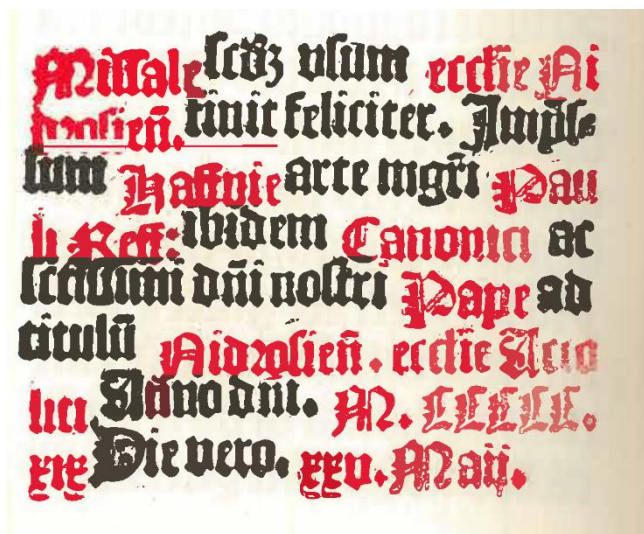 Missale scdꝫ vsum ecclie Ni
drosieñ. finit feliciter. Impꝛes⸗
sum Haffnie arte mgr̃i Pau
li Reff: ibidem Canonici ac
accoliti dñi nostri Pape ad
titulũ Nidꝛosieñ. ecclie
lici Anno dñi. M. CCCCC.
xix Die vero. xxv. Maij.